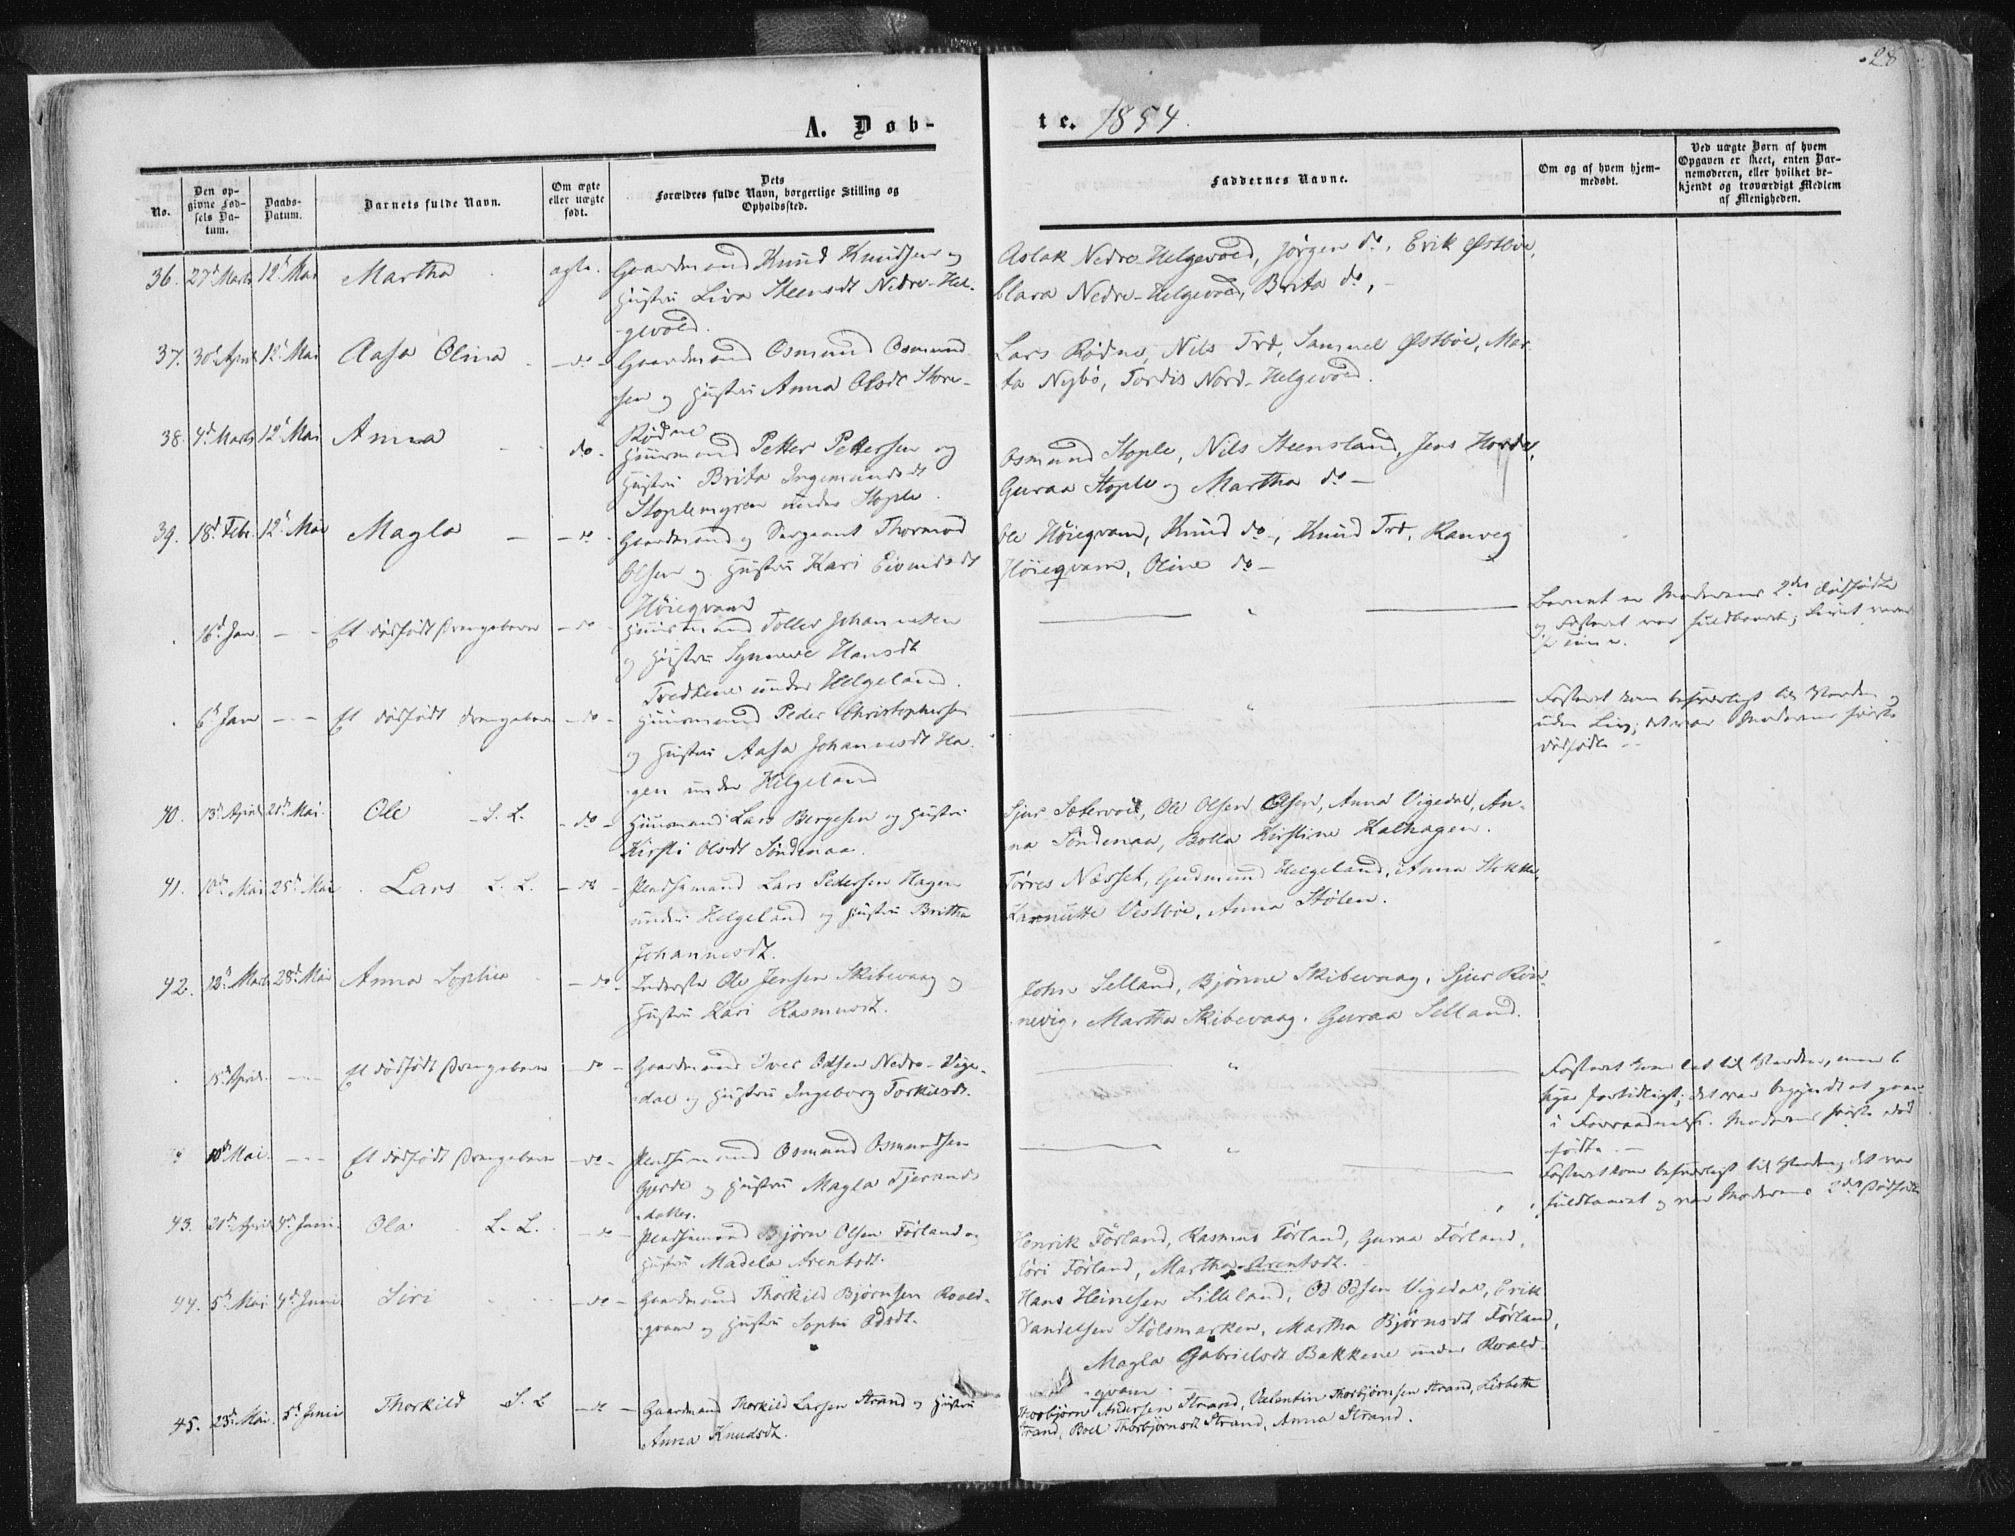 28
A. Døb-
te. 1854.
No.
Den opgivne Fødsels Datum.
Daabs-Datum.
Barnets fulde Navn.
Om ægte eller uægte født.
Dets Forældres fulde Navn, borgerlige Stilling og Opholdssted.
Faddernes Navne.
Om og af hvem hjemmedøbt.
Ved uægte Børn af hvem Opgaven er skeet, enten Barnemoderen, eller hvilket bekjendt og troværdigt Medlem af Menigheden.
36. 27d Marts 12d Mai Martha ægte. Gaardmand Knud Knudsen og
Hustru Liva Steensdt Nedre-Hel-
gevold.
Aslak Nedre Helgevold, Jørgen do, Erik Østbøe,
Clara Nedre-Helgevold, Brita do,
37. 30d April 12d Mai Aasa Olina - do - Gaardmand Osmund Osmund
sen og Hustru Anna Olsdt Store-
Rødne
Lars Rødne, Nils Trd, Samuel Østbøe, Mar-
ta Nybø, Tordis Nord-Helgevold.
38. 4d Marts 12d Mai Anna do. Huusmand Petter Pettersen og
Hustru Brita Ingemundsdt
Stoplemyren under Stople.
Osmund Stople, Nils Steensland, Jens Hovda,
Guraa Stople og Martha do -
39. 18d Febr. 12d Mai Magla - do - Gaardmand og Sergeant Thormod
Olsen og Hustru Kari Eivindsdt
Høiegvam
Ole Høiegvam, Knud do, Knud Trd, Ranveg
Høiegvam, Oline do -
16d Jan. - - Et dødfødt Drengebarn - do - Huusmand Tollev Johannesen
og Hustru Synneve Hansdt
Tredtene under Helgeland.
Barnet er Moderens 2det dødfødte
og Fosteret var fuldbaaret;
6d Jan - - Et dødfødt Drengebarn - do - Huusmand Peder Christophersen
og Hustru Aasa Johannesdt Ha-
gen under Helgeland
Fosteret kom besværligt til Verden og
uden Liv; det var Moderens første
dødfødte -
40. 13d April 21d Mai. Ole - S. L. - do - Huusmand Lars Bergesen og Hustru
Kirsti Olsdt Søndenaa.
Sjur Sætervoll, Ole Olsen Olsen, Anna Vigedal, An-
na Søndenaa, Bolla Kirstine Kalhagen.
41. 10d Mai 25d Mai Lars L. L. - do - Pladsemand Lars Pedersen Hagen
under Helgeland og Hustru Britha
Johannesdt.
Torres Næsset, Gudmund Helgeland, Anna Stokke,
Karnutte Vestbøe, Anna Stølen.
42. 12d Marts 28d Mai Anna Sophie - do - Inderste Ole Jensen Skibevaag og
Hustru Kari Rasmusdt.
John Selland, Bjønne Skibevaag, Sjur Røn-
nevig, Martha Skibevaag, Guraa Selland.
15d April. - - Et dødfødt Drengebarn - do - Gaardmand Iver Odsen Nedre-Vige-
dal og Hustru Ingeborg Torkilsdt.
Fosteret kom let til Verden, men 6
Uger fortidligt; det var begyndt at gaae
i Forraadnelse. Moderens første død-
fødte. -
10d Mai. - - Et dødfødt Drengebarn - do - Pladsemand Osmund Osmundsen
Gjerde og Hustru Magla Tjerands-
datter.
Fosteret kom besværligt til Verden; det var
fuldbaaret og var Moderens 2det Dødfødte
43. 21d April 4d Juni. Ola L. L. - do - Pladsemand Bjørn Olsen Førland og
Hustru Madela Arentsdt.
Henrik Førland, Rasmus Førland, Guraa Førland,
Siri Førland, Martha Arentsdt.
44. 5d Mai 4d Juni Siri - do - Gaardmand Thorkild Bjørnsen Roald-
qvam og Hustru Sophi Odsdt.
Hans Heinesen Lilleland, Od Odsen Vigedal, Erik
Danielsen Stølsmarken, Martha Bjørnsdt Førland,
Magla Gabrielsdt Bakkene under Roald-
qvam
45. 23d Mai. 5d Juni Thorkild S. L - do - Gaardmand Thorkild Larsen Strand og Hustru
Anna Knudsdt.
Thorbjørn Andersen Strand, Valentin Thorbjørnsen Strand, Lisbeth
Strand, Boel Thorbjørnsdt Strand, Anna Strand.